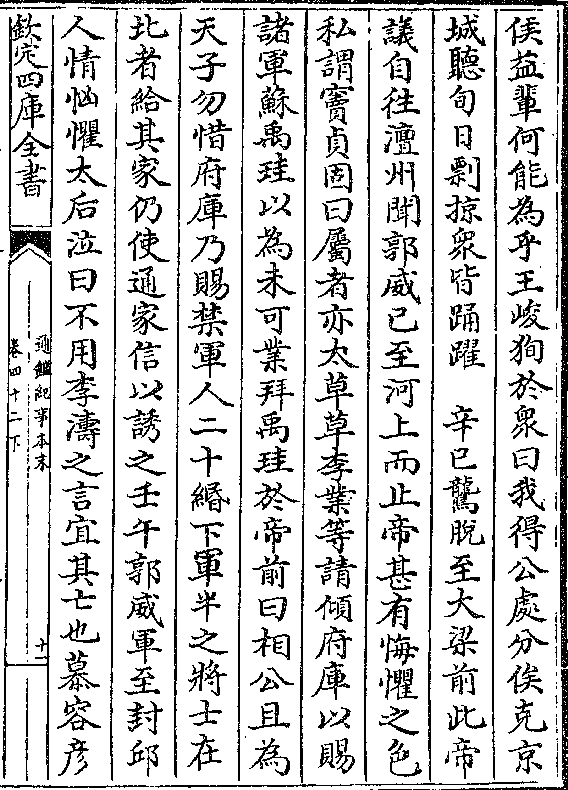 侯益輩何能為乎王峻狥於衆曰我得公處分俟克京
城聽旬日剽掠衆皆踊躍　辛巳鸗脫至大梁前此帝
議自往澶州聞郭威已至河上而止帝甚有悔懼之色
私謂竇貞固曰屬者亦太草草李業等請傾府庫以賜
諸軍蘇禹珪以為未可業拜禹珪於帝前曰相公且為
天子勿惜府庫乃賜禁軍人二十緡下軍半之將士在
北者給其家仍使通家信以誘之壬午郭威軍至封邱
人情恟懼太后泣曰不用李濤之言宜其亡也慕容彦
欽定四庫全書
通鑑紀事本末
卷四十二下
十一